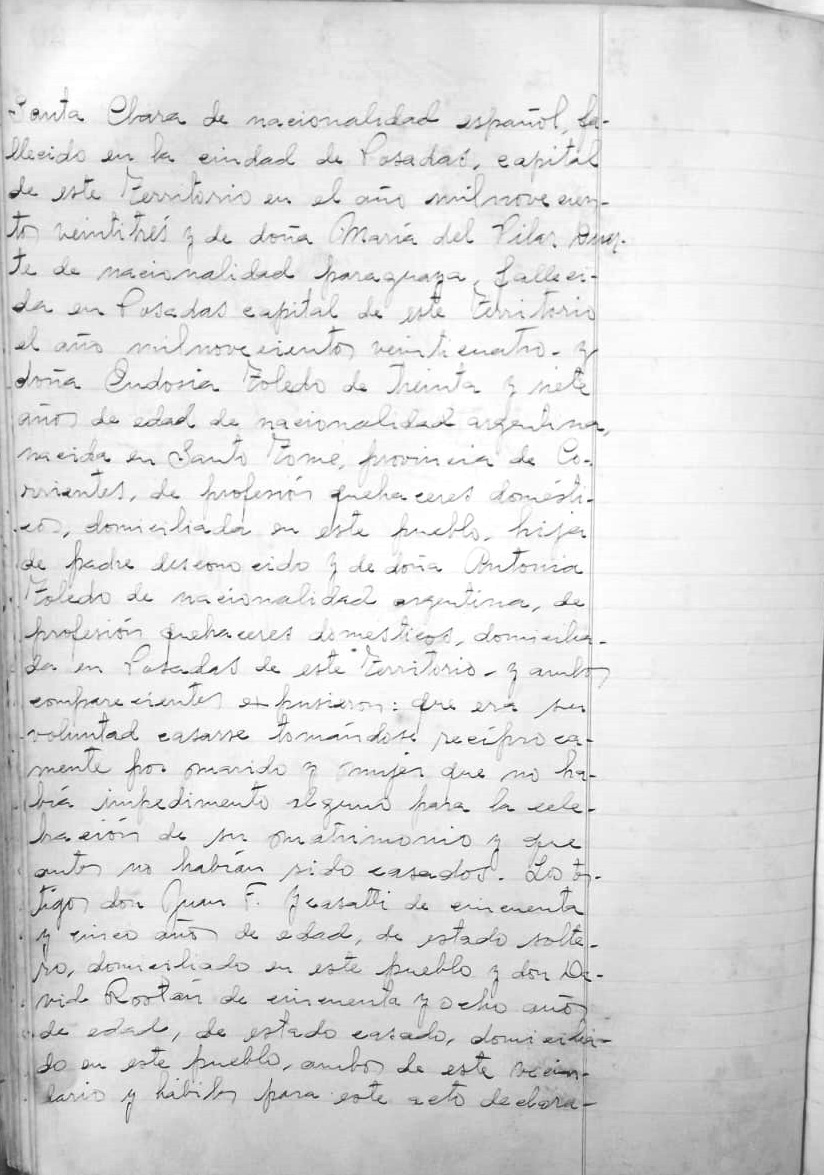 Santa Clara de nacionalidad español, fa-
llecido en la ciudad de Posadas, capital
de este Territorio en el año milnovecien-
tos veintitrés y de doña María del Pilar Duar-
te de nacionalidad paraguaya, falleci-
da en Posadas capital de este Territorio
el año milnovecientos veinticuatro - y
doña Eudosia Toledo de treinta y siete
años de edad de nacionalidad argentina,
nacida en Santo Tomé, provincia de Co-
rrientes, de profesión quehaceres domésti-
cos, domiciliada en este pueblo, hija
de padre desconocido y de doña Antonia
Toledo de nacionalidad argentina, de
profesión quehaceres domésticos, domicilia-
da en Posadas de este Territorio - y ambos
comparecientes expusieron: que era su
voluntad casarse tomándose recíproca-
mente por marido y mujer que no ha-
bía impedimento alguno para la cele-
bración de su matrimonio y que
antes no habían sido casados. Los tes-
tigos don Juan F. de cincuenta
y cinco años de edad, de estado solte-
ro, domiciliado en este pueblo y don Da-
vid Rostán de cincuenta y ocho años
de edad, de estado casado, domicilia-
do en este pueblo, ambos de este vecin-
dario y hábiles para este acto declara-